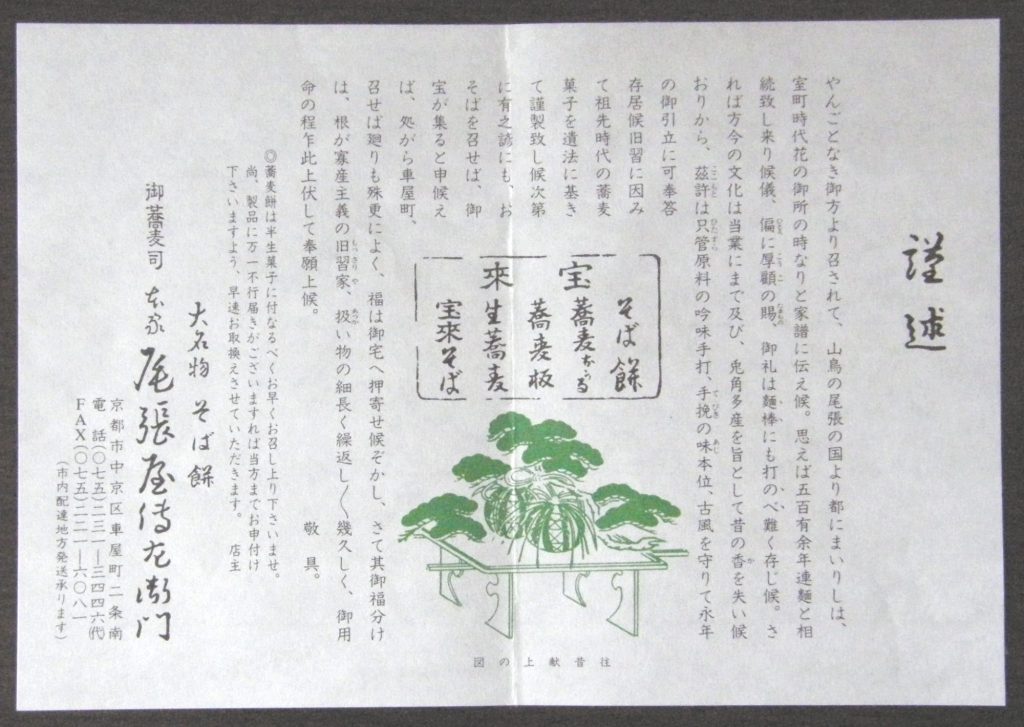 謹述
やんごとなき御方より召されて、山鳥の尾張の国より都にまいりしは、
室町時代花の御所の時なりと家譜に伝え候。思えば五百有余年連麺と相
続致し来り候儀、偏に厚顧の賜、御礼は麺棒にも打のべ難く存じ候。さ
れば方今の文化は当業にまで及び、兎角多産を旨として昔の香を失い候
おりから、茲許は只管原料の吟味手打、手挽の味本位、古風を守りて永年
の御引立に可奉答
存居候旧習に因み
て祖先時代の蕎麦
菓子を遺法に基き
て謹製致し候次第
に有之諺にも、お
そばを召せば、御
宝が集ると申候え
ば、処がら車屋町、
召せば廻りも殊更によく、福は御宅へ押寄せ候ぞかし、さて其御福分け
は、根が寡産主義の旧習家、扱い物の細長く繰返し〱幾久しく、御用
命の程乍此上伏して奉願上候。
敬具。
宝来
そば餅
蕎麦ぼうる
蕎麦板
生蕎麦
宝来そば
往昔献上の図
◎蕎麦餅は半生菓子に付なるべくお早くお召し上り下さいませ。
尚、製品に万一不行届きがございますれば当方までお申付け
下さいますよう、早速お取換えさせていただきます。
店主
大名物 そば餅
御蕎麦司 本家 尾張屋傳左衛門
京都市中京区車屋町二条南
電話(〇七五)二三一―三四四六(代)
FAX(〇七五)二二一―六〇八一
(市内配達地方発送承ります)